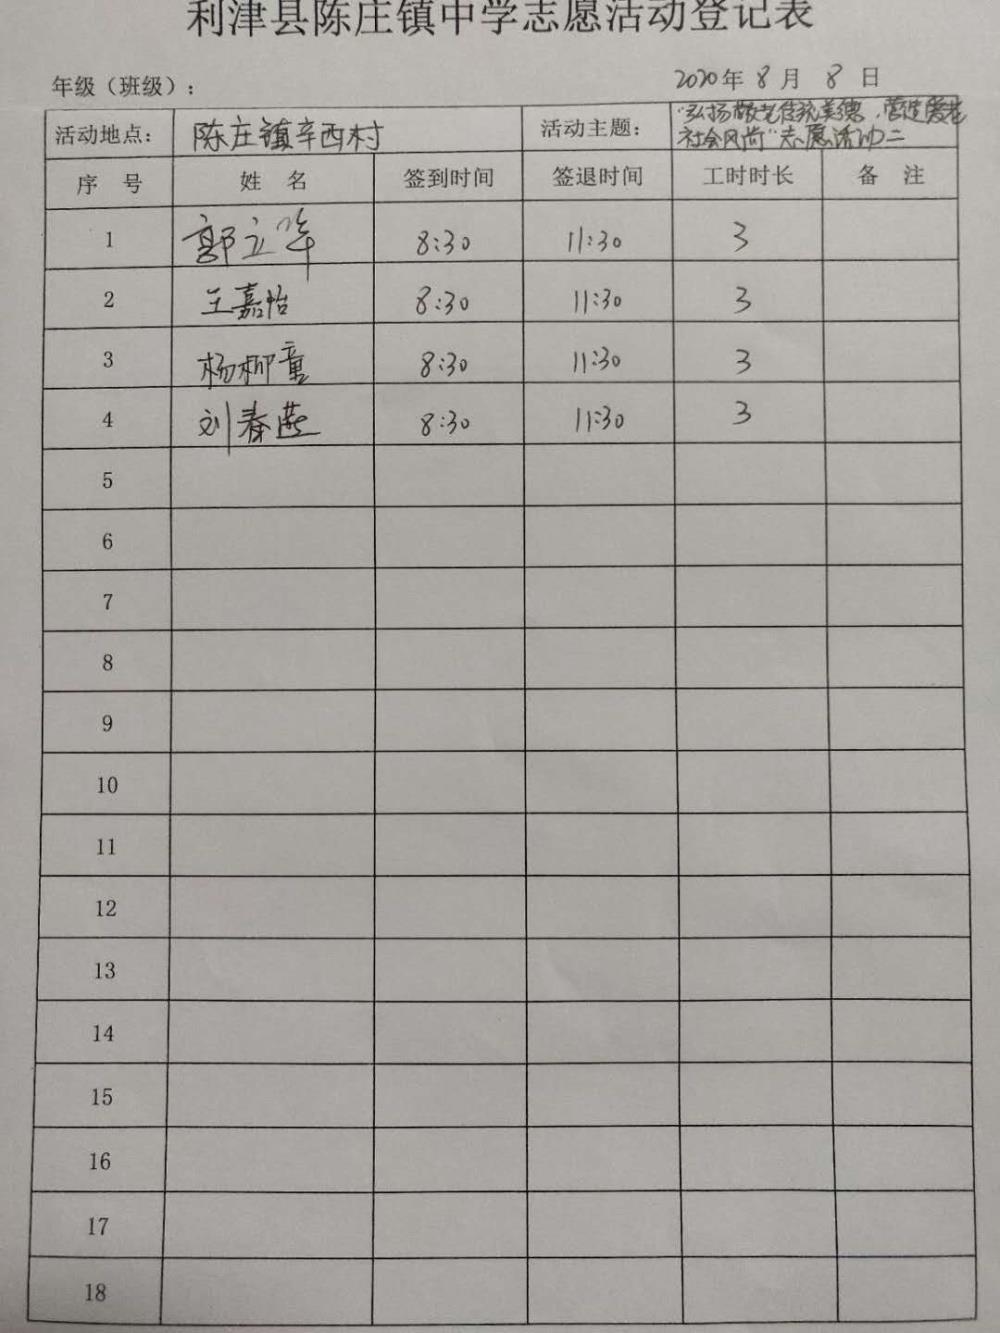 利津县陈庄镇中学志愿活动登记表
年级（班级）： 2020年 8 月 8 日
活动地点： 陈庄镇辛西村 活动主题： "弘扬敬老传统美德，营造爱老
社会风尚"志愿活动二
序 号 姓 名 签到时间 签退时间 工时时长 备 注
1 郭立华 8:30 11:30 3
2 王嘉怡 8:30 11:30 3
3 杨柳童 8:30 11:30 3
4 刘春燕 8:30 11:30 3
5
6
7
8
9
10
11
12
13
14
15
16
17
18